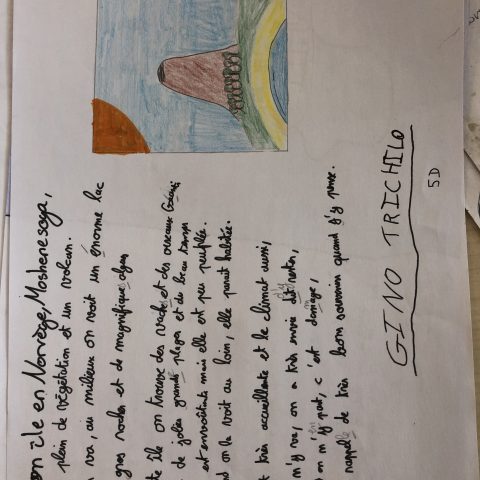 île en Norvège, Moshenesoga,
plein de végétation et un volcan.
va, au milieux on voit un énorme lac
gros roches et de magnifique algue
île on trouve des vaches et des oiseaux
de jolies grande plages et du beau temps
est envoûtante mais elle est peu peuplée.
on la voit au loin, elle parait habitée.
très accueillante et le climat aussi,
m'y va, on a très envie d'y rester,
on m'y part, c'est domage,
rappelle de très bons souvenirs quand j'y pense.
GINO TRICHILO
5D